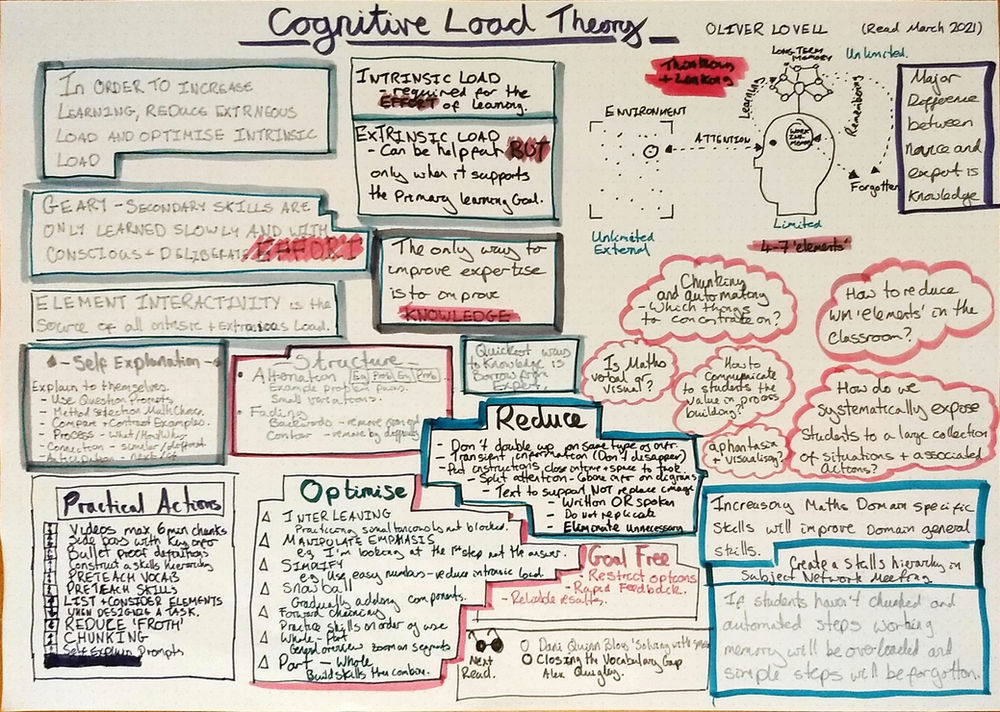 Cognitive Load Theory
OLIVER LOVELL (Read March 2021)
IN ORDER TO INCREASE
LEARNING, REDUCE EXTRNEOUS
LOAD AND OPTIMISE INTRINSIC
LOAD
INTRINSIC LOAD
- required for the
EFFORT of learning.
EXTRINSIC LOAD
- Can be helpful BUT
only when it supports
the Primary learning Goal.
Thinking
+ Linking
LONG TERM
MEMORY
Unlimited.
ENVIRONMENT
Learning
Remembering
ATTENTION
WORKING
MEMORY
Forgotten
Unlimited
External
Limited
4-7 'elements'
Major
Difference
between
novice and
expert is
Knowledge
GEARY - SECONDARY SKILLS ARE
ONLY LEARNED SLOWLY AND WITH
CONSCIOUS + DELIBERATE EFFORT
The only way to
improve expertise
is to improve
KNOWLEDGE
ELEMENT INTERACTIVITY is the
Source of all intrinsic + Extraneous Load.
Chunking
and automating
- Which things
to concentrate on?
How to reduce
WM 'elements' in the
classroom?
Is Maths
verbal or
visual?
How to
communicate
to students the
value in process
building?
aphantasia
+ visualising?
How do we
systematically expose
Students to a large collection
of situations + associated
actions?
- Self Explanation -
Explain to themselves.
- Use Question Prompts
- Method Selection Multi Choice.
- Compare + Contrast Examples.
- Process - What/How/Why
- Connection - similar/different
- Anticipation - next step
Structure
Alternation Eg Prob Eg Prob
Example Problem pairs.
Small variations.
Fading
Backwards - remove from end
Contour - remove by difficulty
Quickest way
to Knowledge is
Borrow from
Expert.
Reduce
- Don't double up on same type of info.
- Transient information (Don't disappear)
- Put instructions close in time + space to task
- Split attention - combine info on diagrams
- Text to support NOT replace image
- Written OR spoken
- Do not replicate
- Eliminate unnecessary
Practical Actions
Videos max 6 min chunks
Side bars with Key info
Bullet proof definitions
Construct a skills hierarchy
PRETEACH VOCAB
PRETEACH SKILLS
LIST + CONSIDER ELEMENTS
WHEN DESIGNING A TASK.
REDUCE 'FROTH'
CHUNKING
Self Explain Prompts
Optimise
INTERLEAVING
Practicing similar concepts not blocked.
MANIPULATE EMPHASIS
eg I'm looking at the 1st step not the answer.
SIMPLIFY
e.g. Use easy numbers - reduce intrinsic load
Snowball
Gradually adding components.
Forward chaining
Practice skills in order of use
Whole - Part
General overview zoom on segments
Part - Whole
Build skills then combine.
Goal Free
- Restrict options
- Rapid Feedback.
- Reliable results.
Next
Read.
Dani Quinn Blog 'Solving with
Closing the Vocabulary Gap
Alex Quigley.
Increasing Maths Domain specific
Skills will improve Domain general
skills.
Create a skills hierarchy in
Subject Network Meeting
If students haven't chunked and
automated steps working
memory will be overloaded and
simple steps will be forgotten.